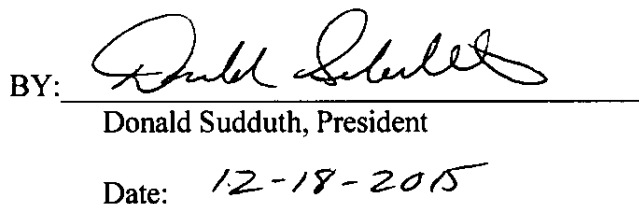 BY: Donald Sudduth
Donald Sudduth, President
Date: 12-18-2015